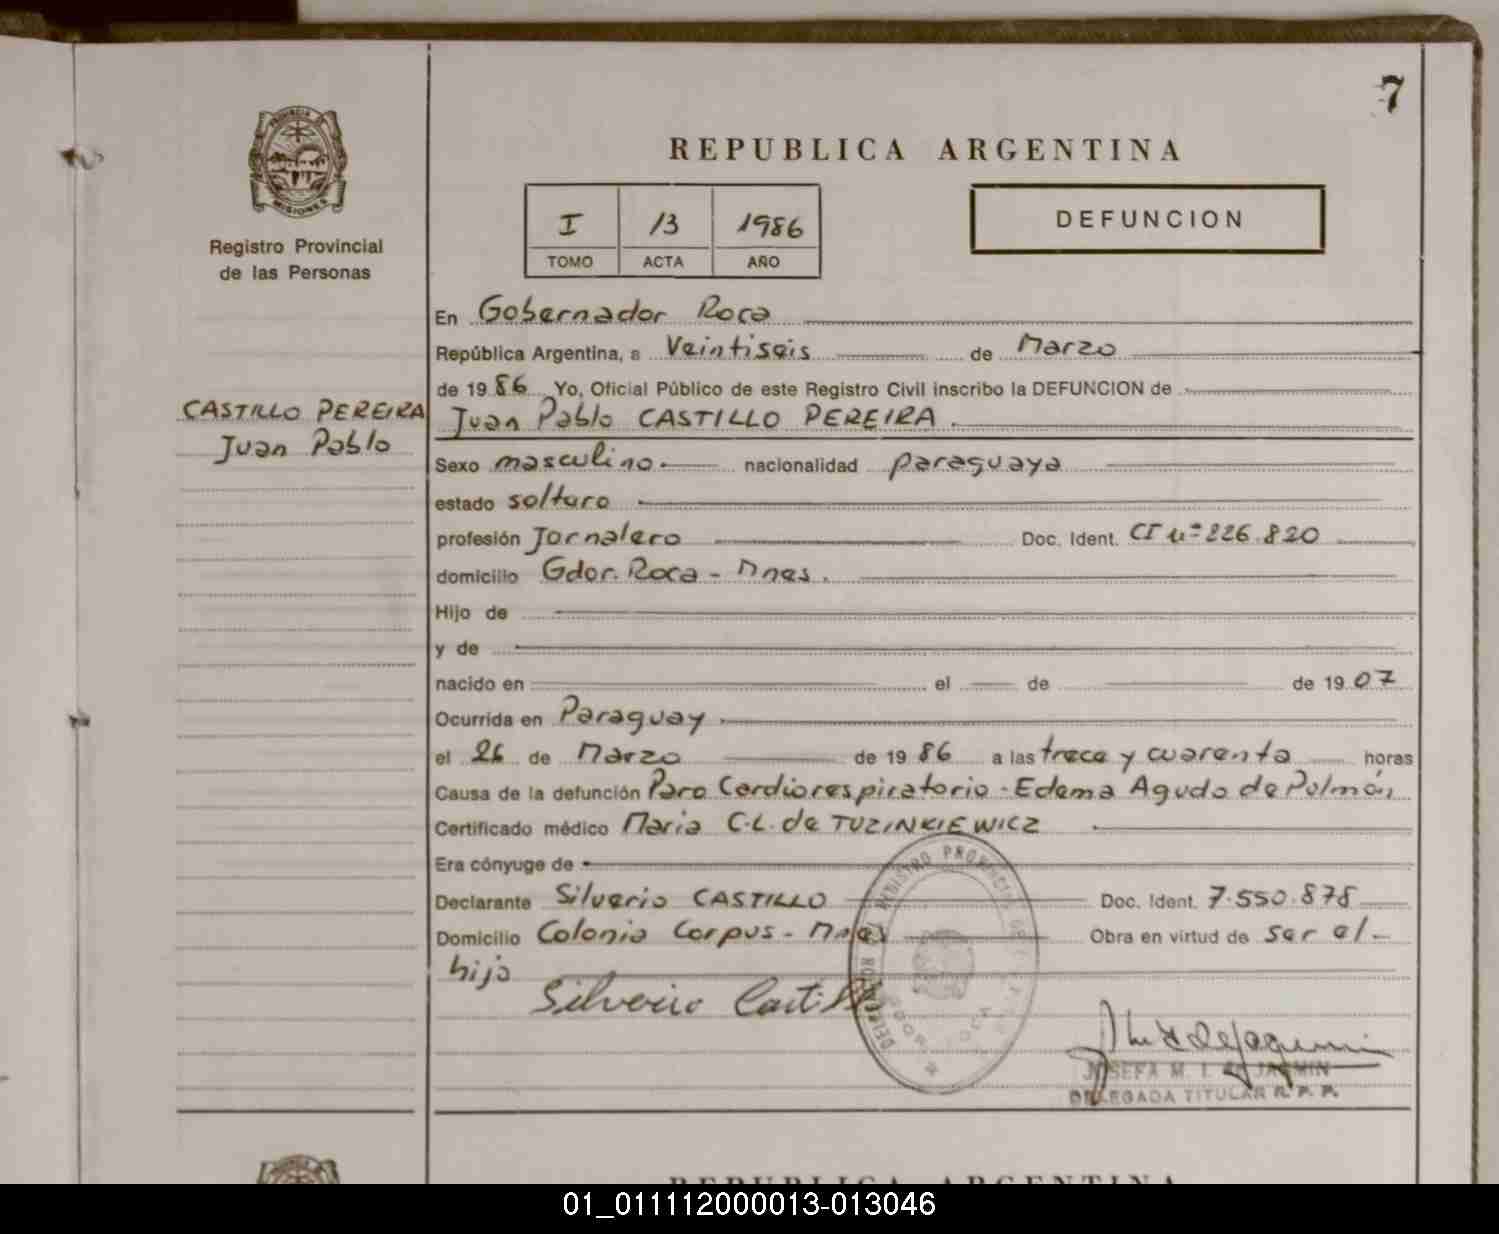 7
PROVINCIA DE
MISIONES
Registro Provincial
de las Personas
REPUBLICA ARGENTINA
I 13 1986
TOMO ACTA AÑO
DEFUNCION
En Gobernador Roca
República Argentina, a Veintiseis de Marzo
de 1986 Yo, Oficial Público de este Registro Civil inscribo la DEFUNCION de
CASTILLO PEREIRA
Juan Pablo
Juan Pablo CASTILLO PEREIRA.
Sexo masculino.- nacionalidad paraguaya
estado soltero
profesión Jornalero Doc. Ident. CI nº 226.820
domicilio Gdor. Roca - Mnes.
Hijo de
y de
nacido en el de de 1907
Ocurrida en Paraguay.
el 26 de Marzo de 1986 a las trece y cuarenta horas
Causa de la defunción Paro Cardiorespiratorio - Edema Agudo de Pulmón
Certificado médico Maria C.L. de TUZINKIEWICZ
Era cónyuge de
Declarante Silverio CASTILLO Doc. Ident. 7.550.878
Domicilio Colonia Corpus - Mnes Obra en virtud de ser el-
hijo
Silverio Castillo
REGISTRO PROVINCIAL DE
JOSEFA M. L. de JASMIN
DELEGADA TITULAR R. P. P.
REPUBLICA ARGENTINA
01_011112000013-013046